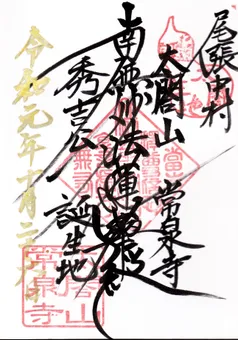 尾張中村
太閤山 常泉寺
南無妙法蓮華経
秀吉公 誕生地
令和元年十月二十日
常泉寺